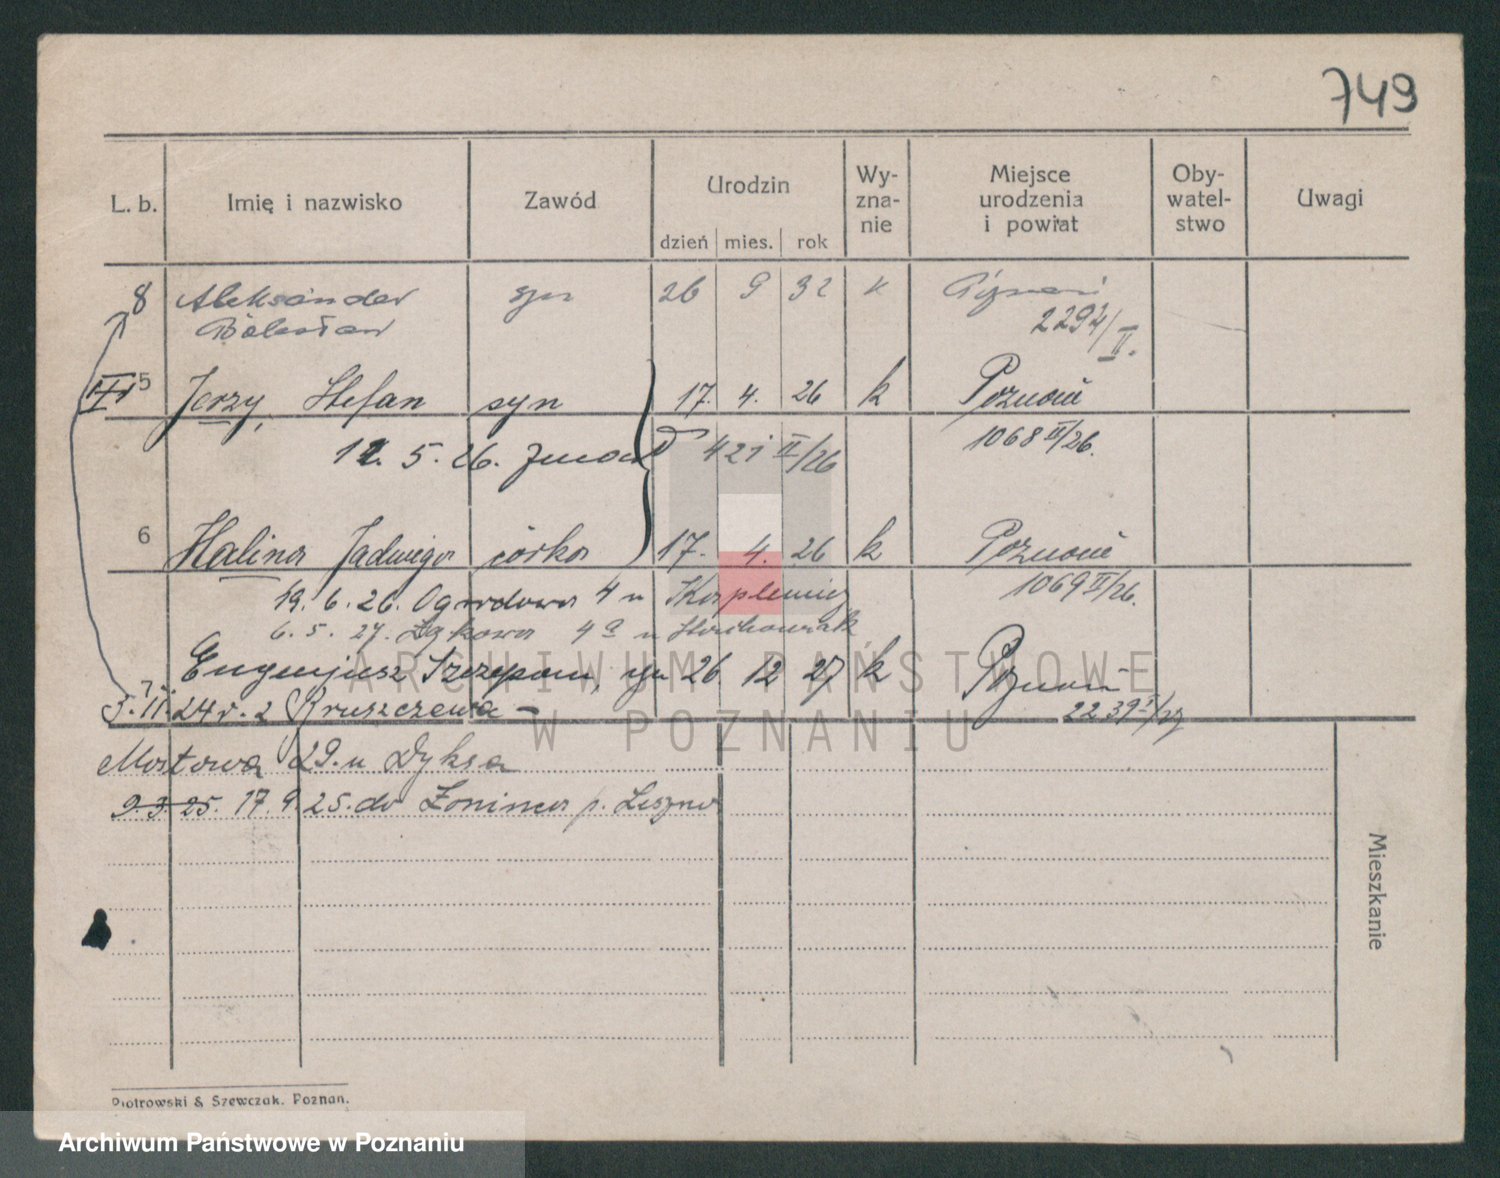 749
L. b. Imię i nazwisko Zawód Urodzin Wy- Miejsce Oby- Uwagi
zna- urodzenia watel-
dzień mies. rok nie i powiat stwo
8 Aleksander syn 26 9 32 k Poznań
Bolesław 2294/II.
III 5 Jerzy, Stefan syn 17. 4. 26 k Poznań
12. 5. 26. 421 II/26 1068 II/26.
6 Halina Jadwiga córka 17. 4. 26 k Poznań
19. 6. 26. Ogrodowa 4 u 1069 II/26.
6. 5. 27. 4a u
7 Eugenjusz Szczepan, syn 26 12 27 k Poznań
24 r. 2 Kruszczewa - 2239 I/27
Mostowa 29. u Dyksa
9.3.25. 17.9.25. do p. Leszno
Mieszkanie
Piotrowski & Szewczak. Poznan.
ARCHIWUM PAŃSTWOWE
W POZNANIU
Archiwum Państwowe w Poznaniu